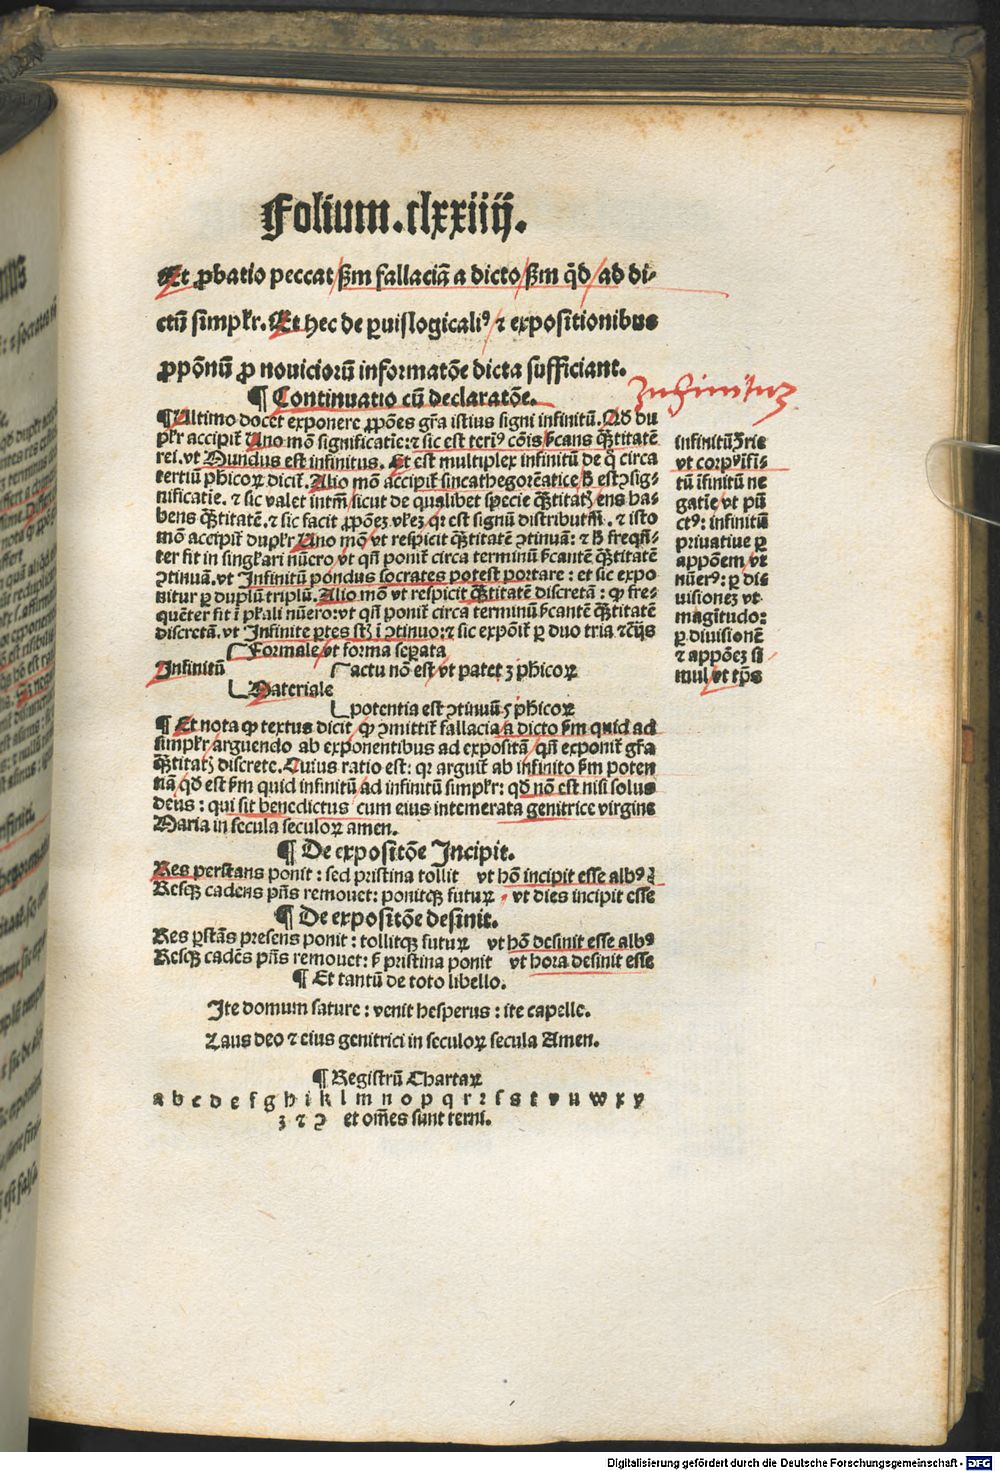 Folium.clxxiiij.
Et ꝓbatio peccat/ẜm fallaciā a dicto/ẜm q̄d/ad di-
ctū simpłr. Et hec de ꝑuisłogicaliꝰ/⁊ expositionibus
ꝓpōnū ꝓ nouiciorū informatōe dicta sufficiant.
¶ Continuatio cū declaratōe.
Infinitus
¶Ultimo docet exponere ꝓpōes gr̄a istius signi infinitū. Ad du
płr accipit̄ Uno mō significatie:⁊ sic est teriꝰ cōis s̄cans q̄titatē
rei. vt Mundus est infinitus. Et est multiplex infinitū de q̄ circa
tertiū phicoꝝ dicit̄. Alio mō accipit̄ sincathegoreātice/ꝗ est ꝯsig-
nificatie. ⁊ sic valet intm̄/sicut de qualibet specie q̄titatꝭ ens ha-
bens q̄titatē. ⁊ sic facit ꝓpōeꝫ vłeꝫ qꝛ est signū distributm̄. ⁊ isto
mō accipit̄ dupłr Uno mō/vt respicit q̄titatē ꝯtinuā: ⁊ ꝗ freqn̄-
ter fit in singłari nūero/vt qn̄ ponit̄ circa terminū s̄cantē q̄titatē
ꝯtinuā. vt Infinitū pondus socrates potest portare: et sic expo
nitur ꝑ duplū triplū. Alio mō vt respicit q̄titatē discretā: qꝫ fre-
quēter fit ī płali nūero: vt qn̄ ponit̄ circa terminū s̄cantē q̄titatē
discretā. vt Infinite ꝑtes st̄ ī ꝯtinuo:⁊ sic expōit̄ ꝑ duo tria ⁊c̄
infinitū
vt corp
tū ifinitū ne
gatie/vt pū
ctꝰ: infinitū
priuatiue ꝑ
appōem/vt
nūerꝰ: ꝑ di
uisioneꝫ vt
magītudo:
ꝑ diuisionē
⁊ appōeꝫ si
mul/vt tp̄s
Formale/vt forma seꝑata
Infinitū actu nō est/vt patet ꝫ phicoꝝ
Materiale
potentia est ꝯtinuū phicoꝝ
¶ Et nota ꝙ textus dicit/ꝙ ꝯmittit̄ fallacia/a dicto ẜm quid ad
simpłr/arguendo ab exponentibus ad expositā/qn̄ exponit̄ gr̄a
q̄titatꝭ discrete. Cuius ratio est: qꝛ arguit̄ ab infinito ẜm poten
tiā/qd̄ est ẜm quid infinitū/ad infinitū simpłr: qd̄ nō est nisi solus
deus: qui sit benedictus cum eius intemerata genitrice virgine
Maria in secula seculoꝝ amen.
¶ De expositōe Incipit.
Res perstans ponit: sed pristina tollit vt hō incipit esse albꝰ
Resqꝫ cadens pn̄s remouet: ponitqꝫ futuꝝ vt dies incipit esse
¶ De expositōe desinit.
Res ꝑstās presens ponit: tollitqꝫ futuꝝ vt hō desinit esse albꝰ
Resqꝫ cadēs pn̄s remouet: s̄ pristina ponit vt hora desinit esse
¶ Et tantū de toto libello.
Ite domum sature: venit hesperus: ite capelle.
Laus deo ⁊ eius genitrici in seculoꝝ secula Amen.
¶ Registrū Chartaꝝ
a b c d e f g h i k l m n o p q r ꝛ ſ s t v u w x y
ꝫ ⁊ ꝯ et om̄es sunt terni.
Digitalisierung gefördert durch die Deutsche Forschungsgemeinschaft - DFG